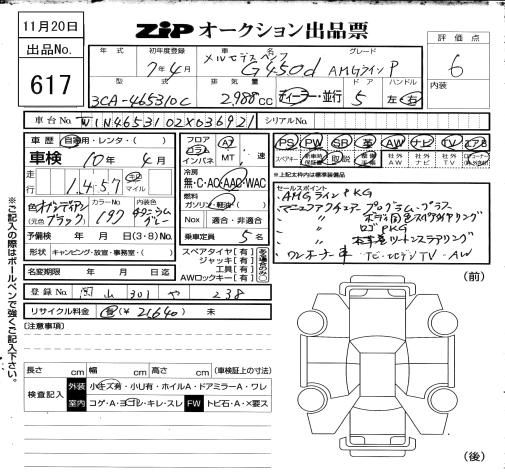 11月20日
ZiP オークション出品票
出品No.
617
年式
初年度登録
車名
グレード
評価点
7年4月
メルセデスベンツ
G450d
AMGラインP
6
内装
型式
排気量
ドア
ハンドル
3CA-465310C
2,988cc
ディーラー・並行
5
左・右
車台No.
W1N4653102X636921
シリアルNo.
車歴
自家用・レンタ・( )
車検
10年 4月
走行
1,457
キロ
マイル
色
(元色
オブシディアン
ブラック
カラーNo
197
内装色
グレー
予備検
年 月 日 (3・8) No.
形状
キャンピング・放宣・事務室・( )
名変期限
年 月 日迄
フロア
コラム
インパネ
AT
MT
速
冷房
無・C・AC・AAC・WAC
燃料
ガソリン・軽油・( )
Nox
適合・非適合
乗車定員
5名
スペアタイヤ[有]
ジャッキ[有]
工具[有]
AWロックキー[有]
PS
PW
SR
革
AW
ナビ
TV
エアB
スペアキー
取説
社外AW
社外ナビ
社外TV
※上記太枠内は標準装備品
セールスポイント
・AMGラインPKG
・マニュファクチュアープログラムプラス
・〃 ボディ同色スペアタイヤリング
・〃 ロゴPKG
・〃
・ワンオーナー車
ナビ・TV・AW
登録No.
岡山 301 や 238
リサイクル料金
有 (¥21,640) 未
(注意事項)
長さ cm 幅 cm 高さ cm (車検証上の寸法)
検査記入
外装
小キズ有・小U有・ホイルA・ドアミラーA・ワレ
室内
コゲ・A・ヨゴレ・キレ・スレ
FW
トビ石・A・×要ス
(前)
(後)
※ご記入の際はボールペンで強くご記入下さい。